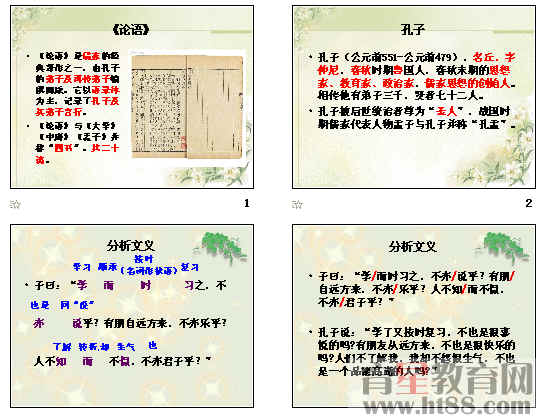 《论语》
• 《论语》是儒家的经
典著作之一，由孔子
的弟子及再传弟子编
撰而成。它以语录体
为主，记录了孔子及
其弟子言行。
• 《论语》与《大学》
《中庸》《孟子》并
称“四书”。共二十
篇。
1
孔子
• 孔子（公元前551-公元前479），名丘，字
仲尼，春秋时期鲁国人，春秋末期的思想
家、教育家、政治家，儒家思想的创始人。
相传他有弟子三千，贤者七十二人。
• 孔子被后世统治者尊为“圣人”，战国时
期儒家代表人物孟子与孔子并称“孔孟”。
2
分析文义
按时
学习 顺承 （名词作状语） 复习
子曰：“学 而 时 习之，不
也是 同“悦”
亦 说乎？有朋自远方来，不亦乐乎？
了解 转折,却 生气 也
人不知 而 不愠，不亦君子乎？”
分析文义
• 子曰：“学/而时习之，不亦/说乎？有朋/
自远方来，不亦/乐乎？人不知/而不愠，
不亦/君子乎？”
• 孔子说：“学了又按时复习，不也是很喜
悦的吗?有朋友从远方来，不也是很快乐的
吗?人们不了解我，我却不怨恨生气，不也
是一个品德高尚的人吗?”
育星教育网
www.ht88.com